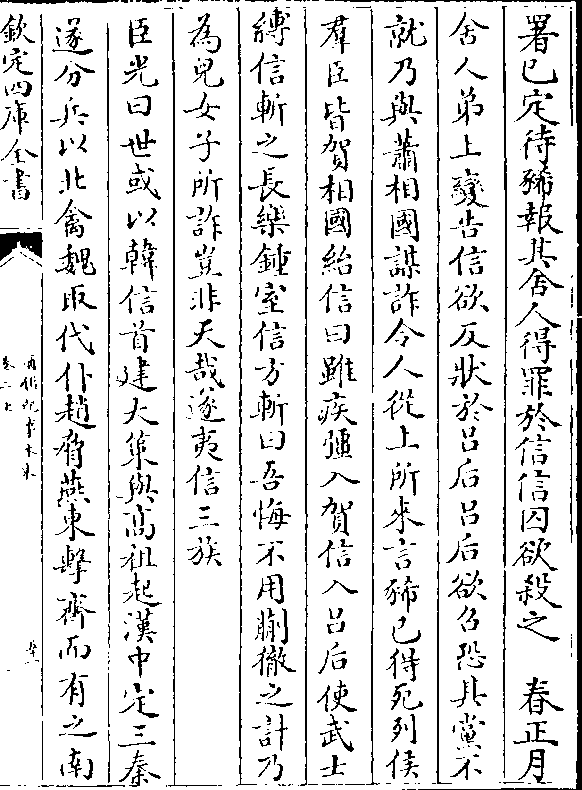 署已定待豨報其舍人得罪於信信囚欲殺之　春正月
舍人弟上變告信欲反狀於吕后吕后欲召恐其黨不
就乃與蕭相國謀詐令人從上所來言豨已得死列侯
羣臣皆賀相國紿信曰雖疾彊入賀信入吕后使武士
縛信斬之長樂鍾室信方斬曰吾悔不用蒯徹之計乃
為兒女子所詐豈非天哉遂夷信三族
臣光曰世或以韓信首建大策與髙祖起漢中定三秦
遂分兵以北禽魏取代仆趙脅燕東擊齊而有之南
欽定四庫全書